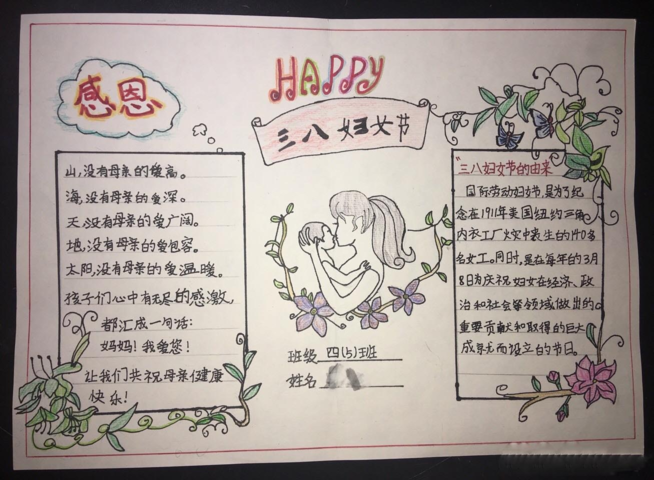 HAPPY
三八妇女节
感恩
山,没有母亲的爱高。
海,没有母亲的爱深。
天,没有母亲的爱广阔。
地,没有母亲的爱包容。
太阳,没有母亲的爱温暖。
孩子们心中有无尽的感激,
都汇成一句话:
妈妈!我爱您!
让我们共祝母亲健康
快乐!
班级 四(5)班
姓名
"三八妇女节的由来
国际劳动妇女节,是为了纪
念在1911年美国纽约三角
内衣工厂火灾中丧生的140多
名女工。同时,是在每年的3月
8日为庆祝妇女在经济、政
治和社会等领域做出的
重要贡献和取得的巨大
成就而设立的节日。